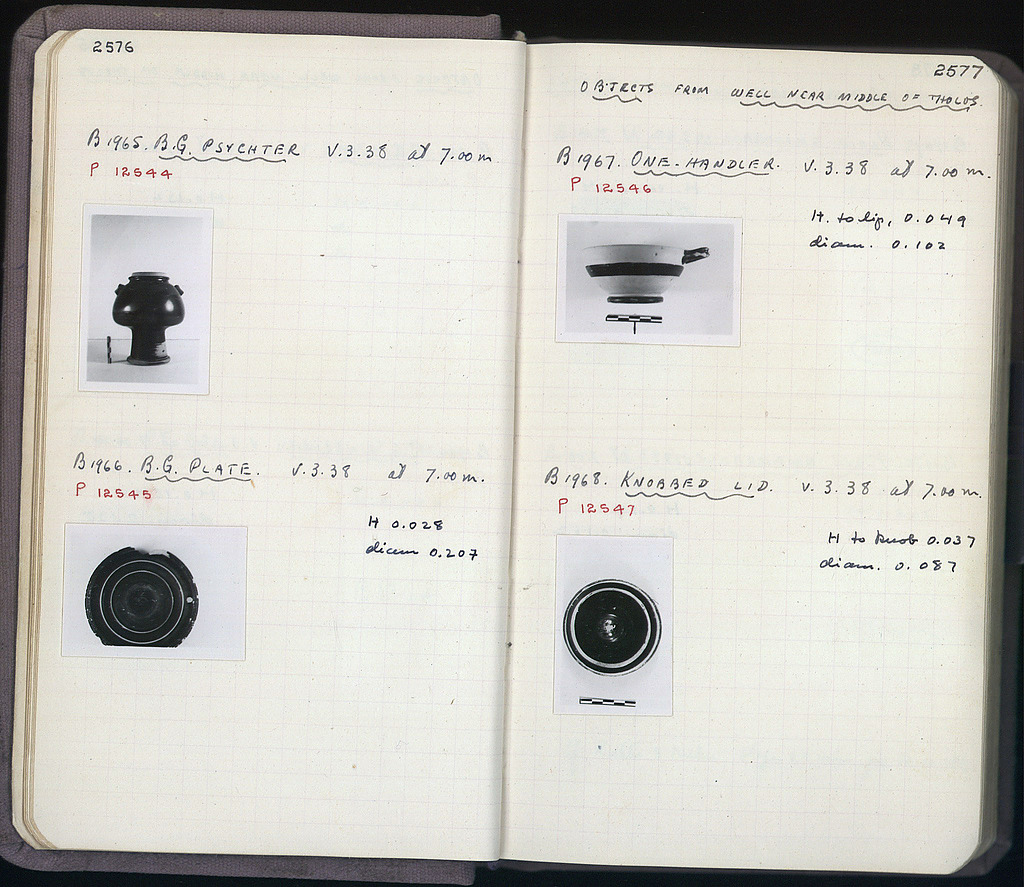 2576
B 1965. B.G. PSYCHTER V.3.38 at 7.00 m.
P 12544
B 1966. B.G. PLATE. V.3.38 at 7.00 m.
P 12545
H 0.028
diam 0.207
2577
OBJECTS FROM WELL NEAR MIDDLE OF THOLOS.
B 1967. ONE-HANDLER. V.3.38 at 7.00 m.
P 12546
H. to lip, 0.049
diam. 0.102
B 1968. KNOBBED LID. V.3.38 at 7.00 m.
P 12547
H to knob 0.037
diam. 0.087